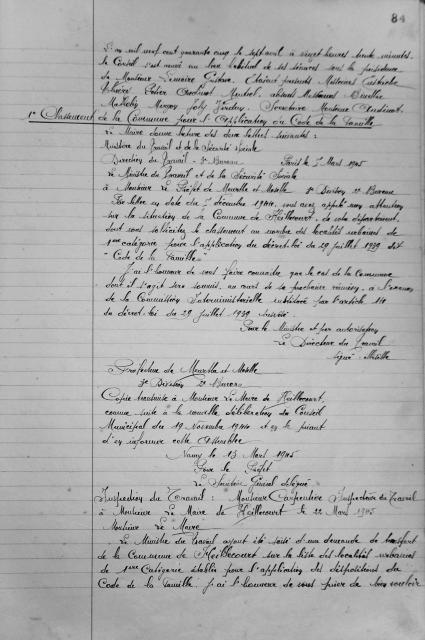 84
L'an mil neuf cent quarante cinq le sept avril à vingt heures trente minutes
le Conseil s'est réuni au lieu habituel de ses séances sous la présidence
de Monsieur Lemoine Gustave. Étaient présents Messieurs
absents Messieurs
Mathély Joly Secrétaire Monsieur
1° Classement de la Commune pour l'application du Code de la Famille
Le Maire donne lecture des deux lettres suivantes :
Ministère du Travail et de la Sécurité Sociale
Direction du Travail - 3e Bureau Paris le 7 Mars 1945
Le Ministre du Travail et de la Sécurité Sociale
à Monsieur le Préfet de Meurthe et Moselle 3e Division 2e Bureau
Par lettre en date du 7 décembre 1944, vous avez appelé mon attention
sur la situation de la Commune de Heillecourt, de votre département,
dont vous sollicitez le classement au nombre des localités urbaines de
1ère catégorie pour l'application du décret-loi du 29 juillet 1939 dit
"Code de la Famille"
J'ai l'honneur de vous faire connaître que le cas de la Commune
dont il s'agit sera soumis, au cours de sa prochaine réunion, à l'examen
de la Commission Interministérielle instituée par l'article
du décret-loi du 29 juillet 1939 susvisé
Pour le Ministre et par autorisation
Le Directeur du Travail
signé
Préfecture de Meurthe et Moselle
3e Division 2e Bureau
Copie transmise à Monsieur le Maire de Heillecourt,
comme suite à la nouvelle délibération du Conseil
Municipal du 19 Novembre 1944 et en le priant
d'en informer cette Assemblée
Nancy le 13 Mars 1945
Pour le Préfet
Le Secrétaire Général délégué
Inspection du Travail : Monsieur Carpentier Inspecteur du Travail
à Monsieur le Maire de Heillecourt le 22 Mars 1945
Monsieur le Maire
Le Ministre du Travail ayant été saisi d'une demande de transfert
de la Commune de Heillecourt sur la liste des localités urbaines
de 1ère Catégorie établie pour l'application des dispositions du
Code de la Famille, j'ai l'honneur de vous prier de bien vouloir